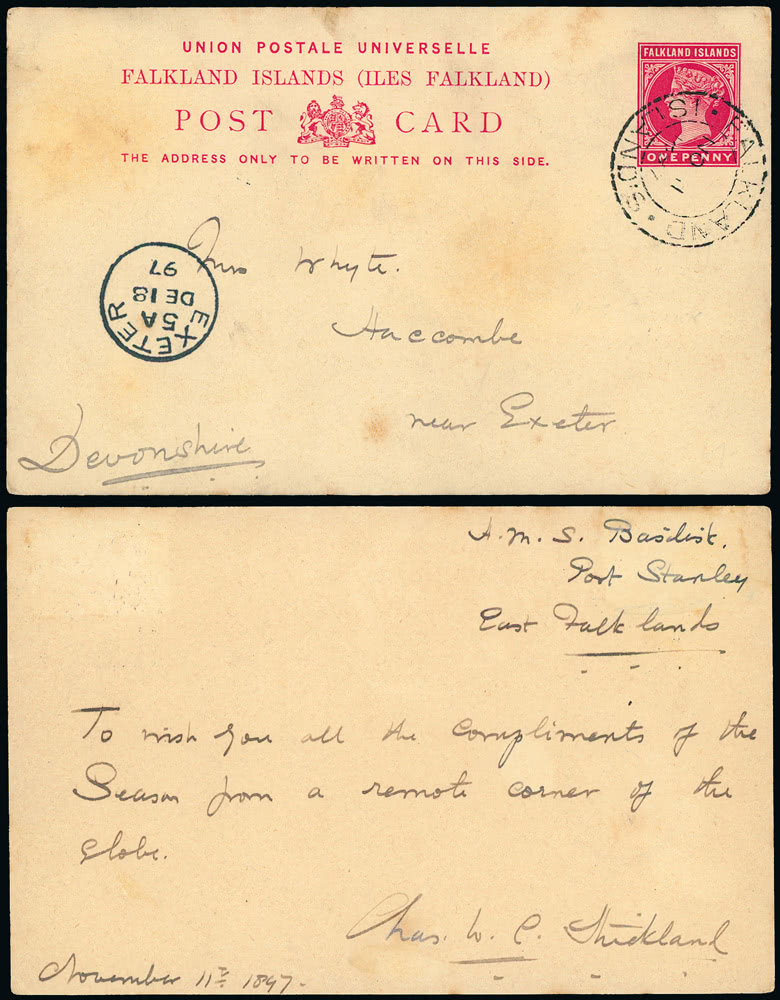 UNION POSTALE UNIVERSELLE
FALKLAND ISLANDS (ILES FALKLAND)
POST CARD
THE ADDRESS ONLY TO BE WRITTEN ON THIS SIDE.
FALKLAND ISLANDS
ONE PENNY
FALKLAND ISLANDS
EXETER
5A
DE 18
97
Whyte.
Haccombe
near Exeter
Devonshire
H.M.S. Basilisk.
Port Stanley
East Falklands
To wish you all the compliments of the
Season from a remote corner of the
globe.
Chas. W. C. Strickland
November 11th 1897.